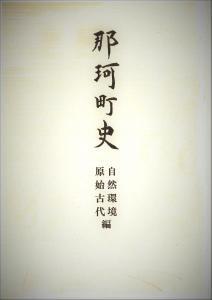 那珂町史
自然環境
原始古代編